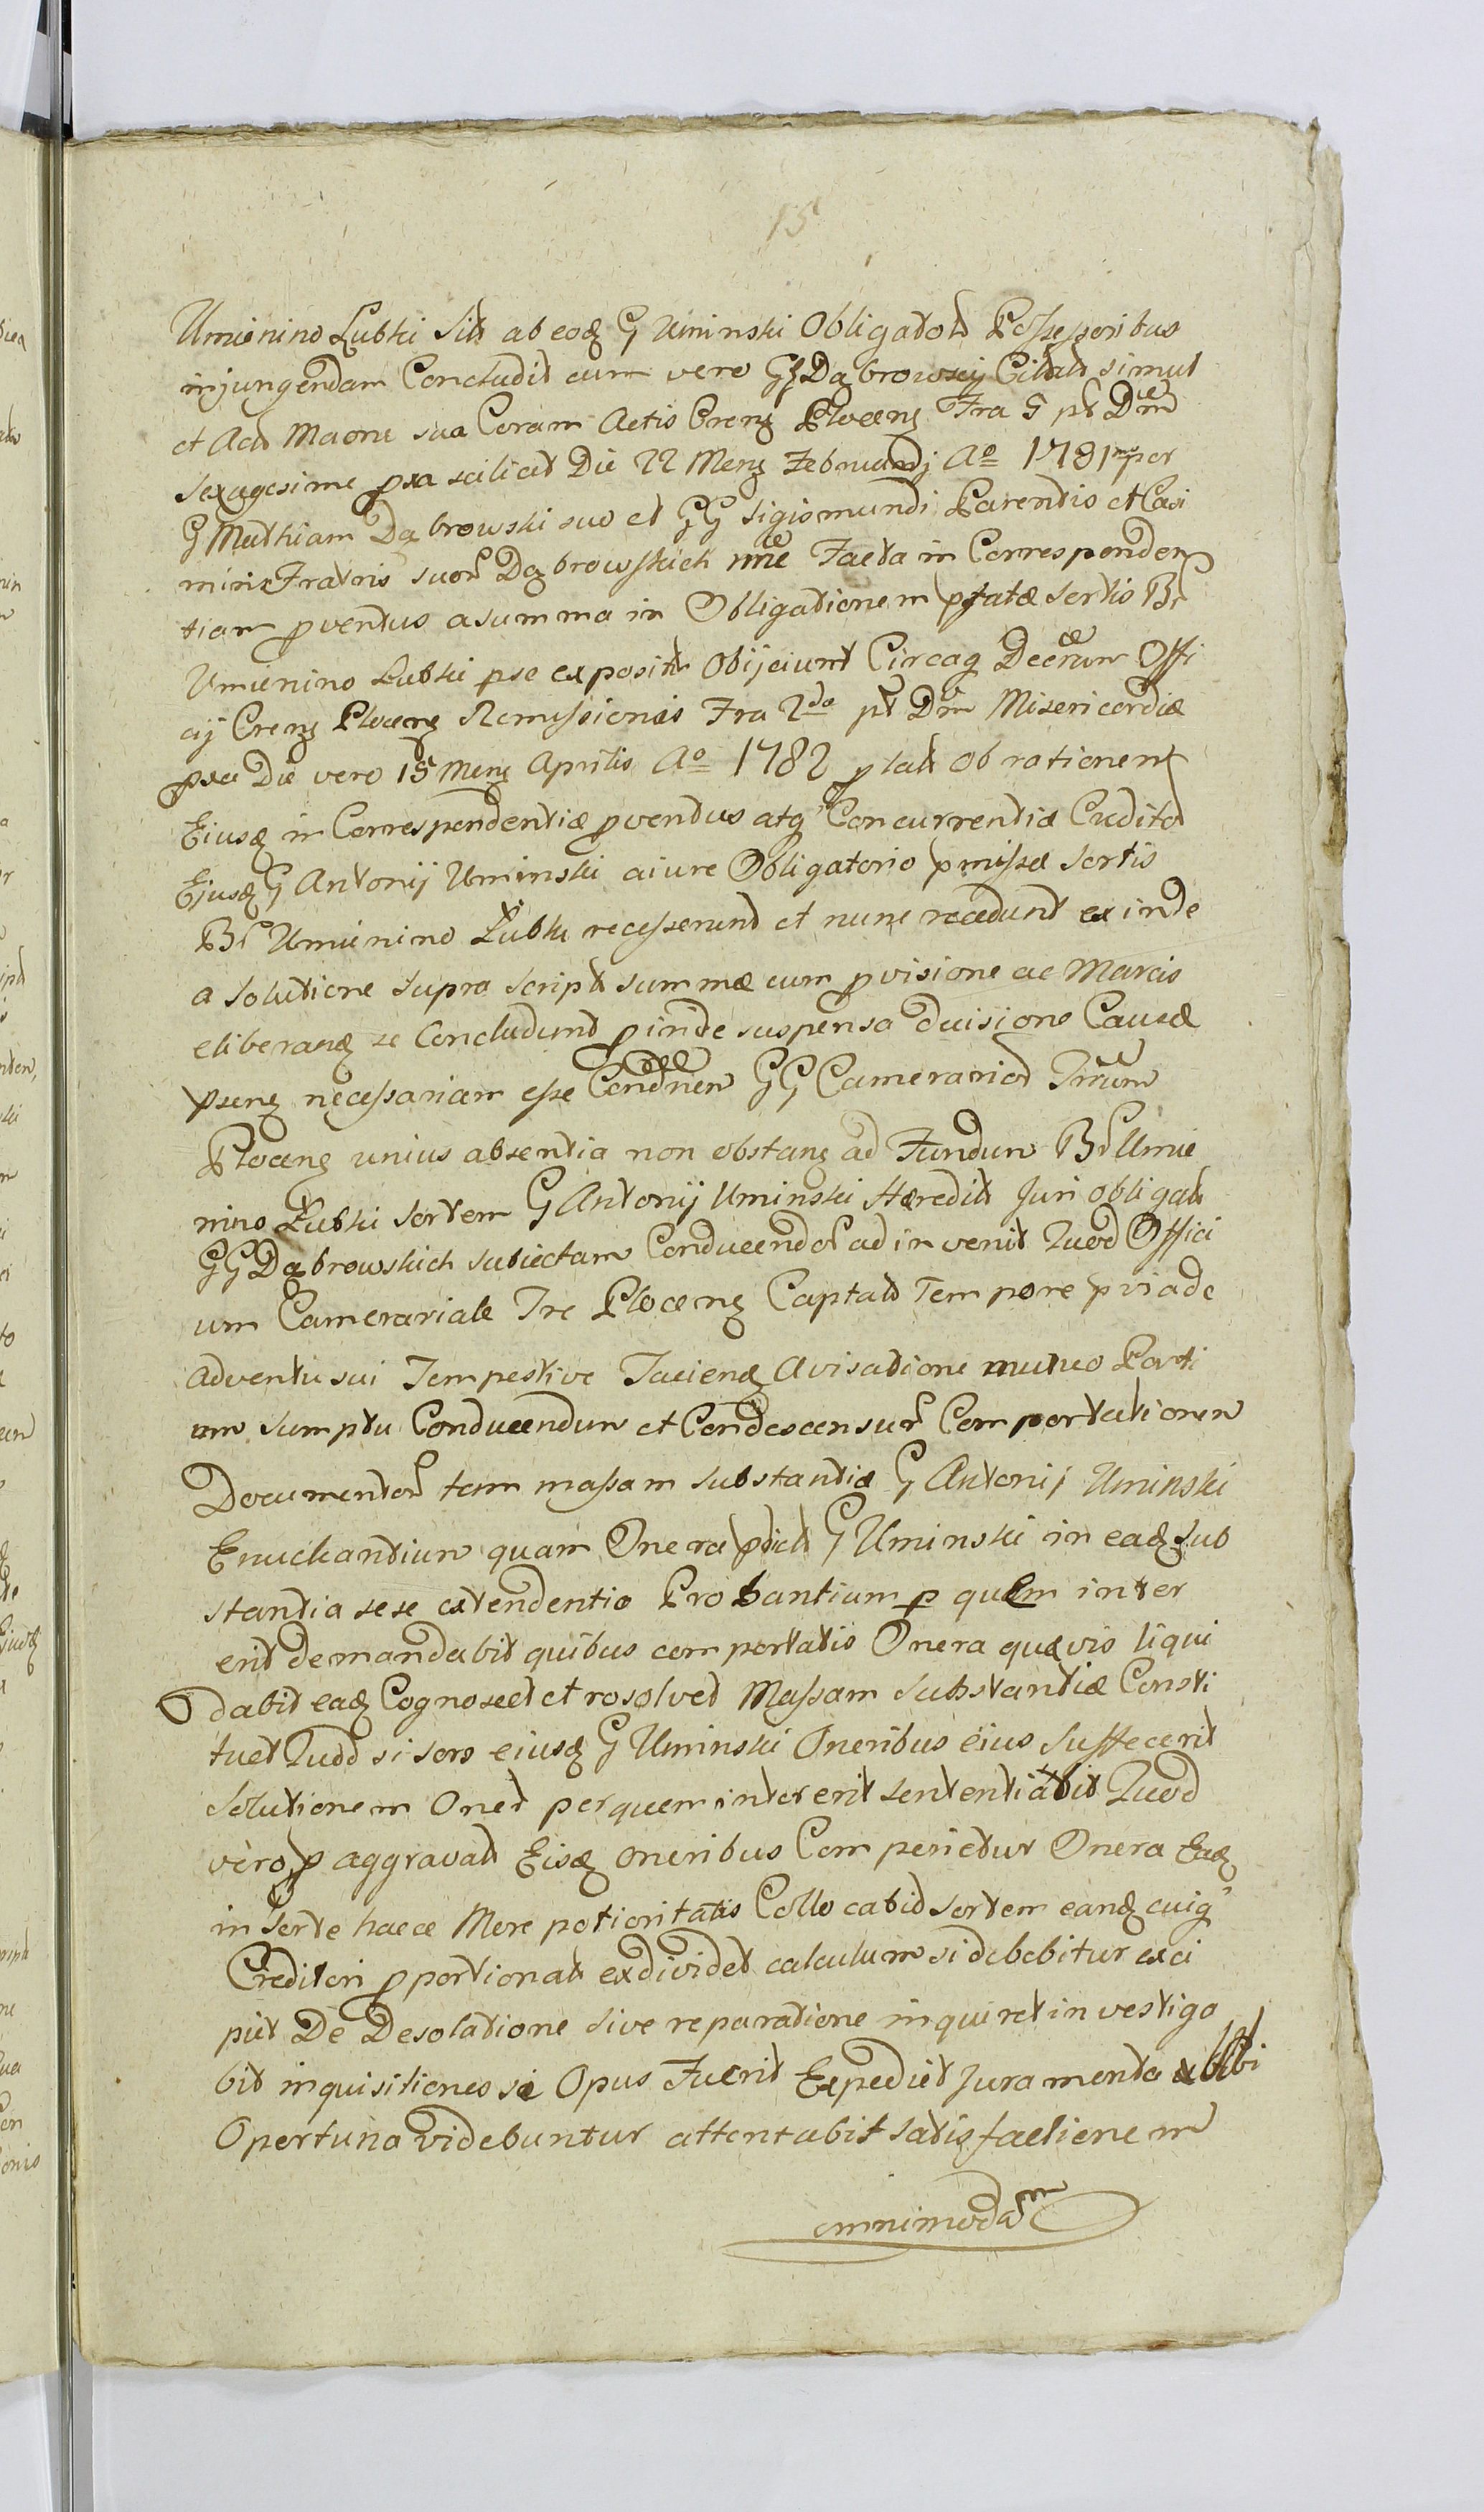 15
Umienino Łubki Sit ab eodq G Uminski Obligatoh Possessoribus
injungendam Concludit cum vero GG Dąbrowscy Citati simul
et Act Maone sua Coram Actis Crenẓ Plocenẓ Fra 5 pt Dm̃
Sexagesime pxa scilicet Die 22 Menẓ Februarij Aº 1781mo per
G Mathiam Dąbrowski suo et GG Sigismundi Parentis et Casi
miri Fratris suoꝝ Dąbrowskich nñe Facta in Corresponden
tiam pventus a summa in Obligationem pfatæ Sortis Br
Umienino Łubki pse exposith Obijciunt Circaq Decretum Offi
cij Crenẓ Plocenẓ Remissionis Fra 2da pt Dm̃ Misericordiæ
pxa Die vero 15 Menẓ Aprilis Aº 1782 plath ob rationem
Ejusq in Correspondentiæ pventus atq Concurrentiæ Credito
Ejusq G Antonij Uminski a iure Obligatorio pmissæ Sortis
Br Umienino Łubki recesserunt et nunc recedunt exinde
a Solutione supra script summæ cum pvisione ac Marcis
eliberanẓ se Concludunt pinde suspensa Decisione Causæ
psenẓ necessariam esse Condñen GG Camerarioꝝ Trr̃um
Plocenẓ unius absentia non obstanẓ ad Fundum Br Umie
nino Łubki Sortem G Antonij Uminski Hæredith Juri obligath
GG Dąbrowskich subiectam Conducendoꝝ adinvenit Quod Offici
um Camerariale Tre Plocenẓ Captato Tempore pvia de
adventu sui Tempestive Faciend Avisatione mutuo Parti
um sumptu Conducendum et Condescensuꝝ Comportationem
Documentoꝝ tam massam substantiæ G Antonij Uminski
Enucleantium quam Onera pdicti G Uminski in eadq Sub
stantia sese extendentia Probantium p quem inter
erit demandabit quibus comportatis Onera quævis liqui
dabit eadq Cognoscet et resolvet Massam Substantiæ Consti
tuet Quod si sors eiusq G Uminski Oneribus eius Suffecerit
Solutionem Oneꝝ per quem intererit sententiabit Quod
vero p aggravata Eisq oneribus Comperietur Onera Eadq
in Sorte haece More potioritatis Collocabit Sortem eandq cuiq
Creditori pportionath exdividet calculum si debebitur exci
piet De Desolatione sive reparatione inquiret investiga
bit inquisitiones si Opus Fuerit Expediet Juramenta ubi
Opertuna videbuntur attentabit Satisfactionem
omnimodam